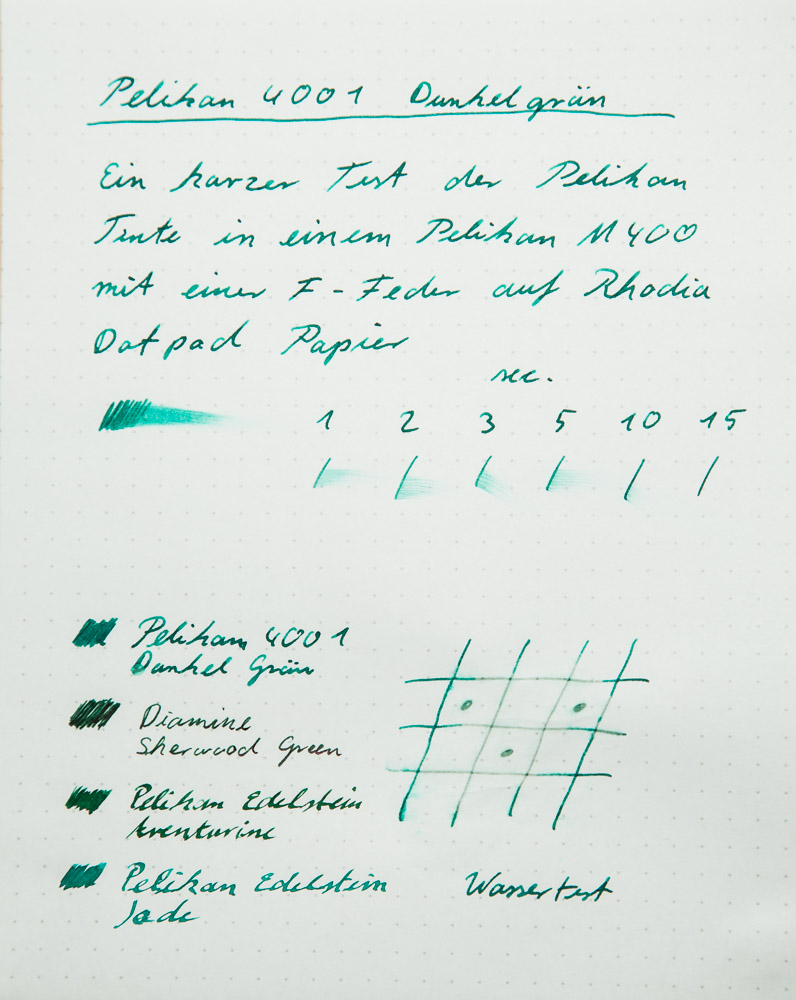 Pelikan 4001 Dunkelgrün
Ein kurzer Test der Pelikan
Tinte in einem Pelikan M400
mit einer F-Feder auf Rhodia
Dotpad Papier
sec.
1 2 3 5 10 15
Pelikan 4001
Dunkel Grün
Diamine
Sherwood Green
Pelikan Edelstein
Aventurine
Pelikan Edelstein
Jade
Wassertest